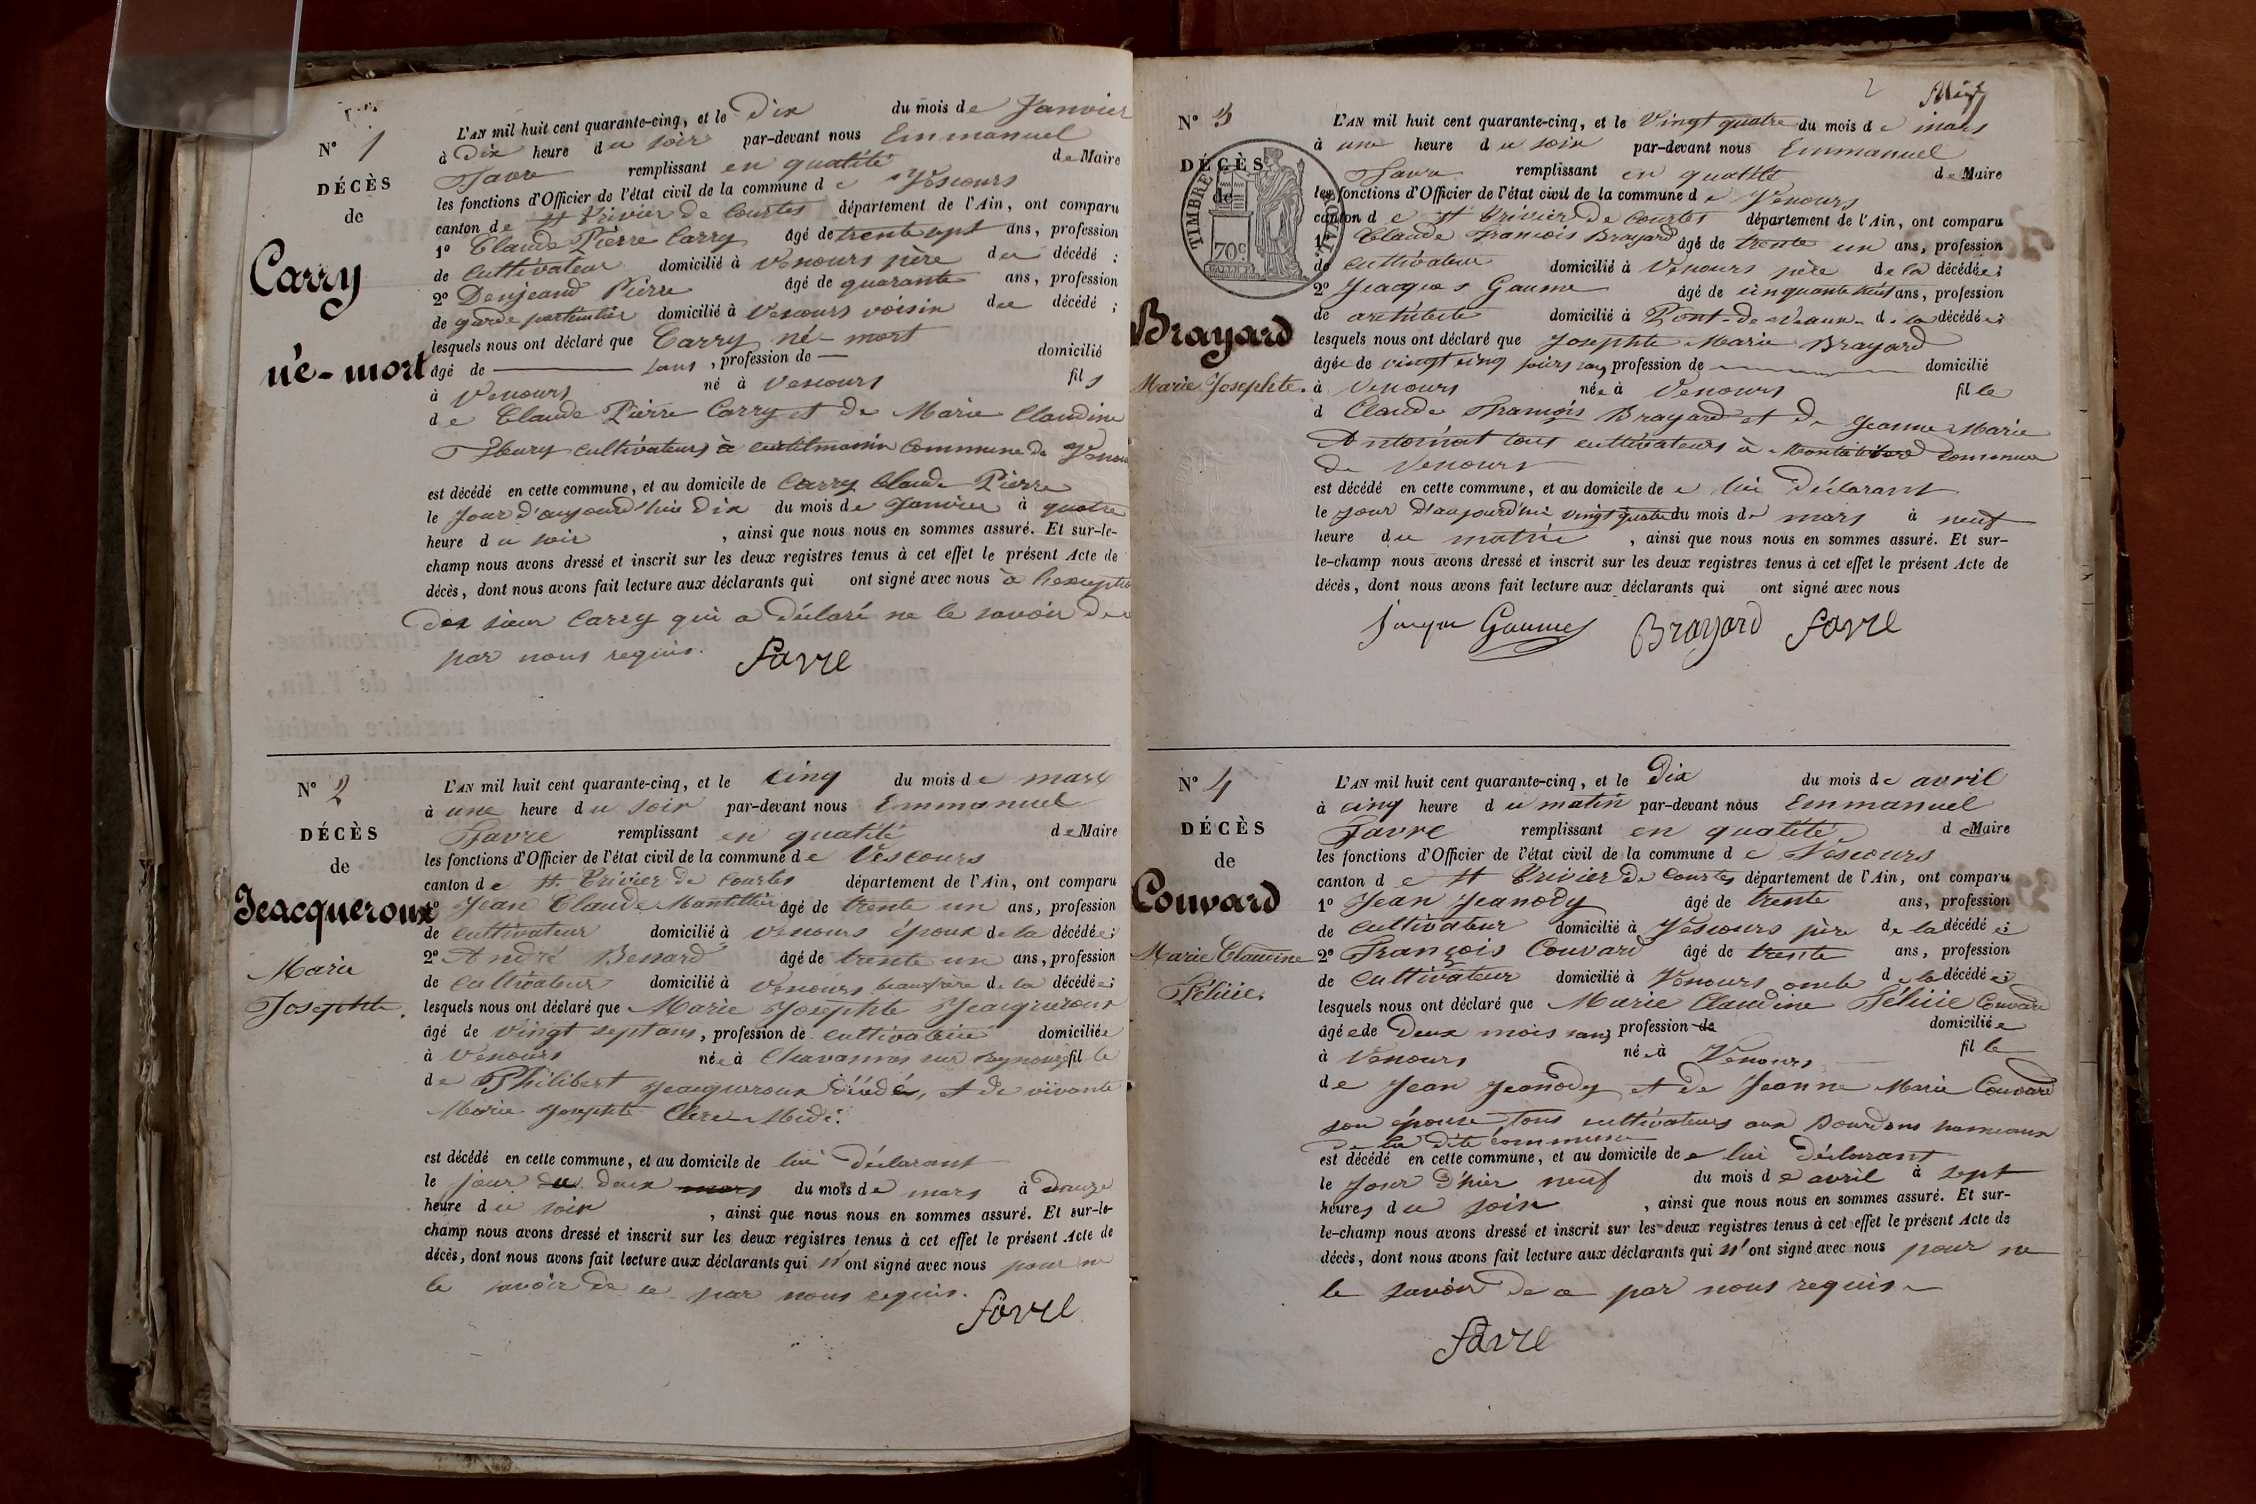 N° 1
DÉCÈS
de
Carry
né-mort
L'AN mil huit cent quarante-cinq, et le Dix du mois de Janvier
à Dix heure du soir par-devant nous Emmanuel
Favre remplissant en qualité de Maire
les fonctions d'Officier de l'état civil de la commune de Vescours
canton de St Trivier de Courtes département de l'Ain, ont comparu
1° Claude Pierre Carry âgé de trente sept ans, profession
de cultivateur domicilié à Vescours père du décédé ;
2° Denjeand Pierre âgé de quarante ans, profession
de garde particulier domicilié à Vescours voisin du décédé ;
lesquels nous ont déclaré que Carry né-mort
âgé de — sans, profession de — domicilié
à Vescours né à Vescours fils
de Claude Pierre Carry et de Marie Claudine
Fleury cultivateurs à commune de
est décédé en cette commune, et au domicile de Carry Claude Pierre
le Jour d'aujourd'hui Dix du mois de Janvier à quatre
heure du soir , ainsi que nous nous en sommes assuré. Et sur-le-
champ nous avons dressé et inscrit sur les deux registres tenus à cet effet le présent Acte de
décès, dont nous avons fait lecture aux déclarants qui ont signé avec nous à l'exception
des sieur Carry qui a déclaré ne le savoir De
par nous requis.
Favre
N° 2
DÉCÈS
de
Jeacqueroux
Marie
Josephte.
L'AN mil huit cent quarante-cinq, et le cinq du mois de mars
à une heure du soir par-devant nous Emmanuel
Favre remplissant en qualité de Maire
les fonctions d'Officier de l'état civil de la commune de Vescours
canton de St. Trivier de Courtes département de l'Ain, ont comparu
1° Jean Claude Mantillier âgé de trente un ans, profession
de cultivateur domicilié à Vescours époux de la décédée;
2° André Bessard âgé de trente un ans, profession
de cultivateur domicilié à Vescours beaufrère de la décédée;
lesquels nous ont déclaré que Marie Josephte Jeacqueroux
âgé de vingt sept ans, profession de cultivatrice domiciliée
à Vescours née à Chavannes sur Reyssouze fille
de Philibert Jeacqueroux décédé, et de vivante
Marie Josephte Clere Midi.
est décédé en cette commune, et au domicile de lui déclarant
le jour du deux mars du mois de mars à onze
heure du soir , ainsi que nous nous en sommes assuré. Et sur-le-
champ nous avons dressé et inscrit sur les deux registres tenus à cet effet le présent Acte de
décès, dont nous avons fait lecture aux déclarants qui n'ont signé avec nous pour ne
le savoir de ce par nous requis.
Favre
2
N° 3
DÉCÈS
de
TIMBRE ROYAL
70c
Brayard
Marie Josephte.
L'AN mil huit cent quarante-cinq, et le Vingt quatre du mois de mars
à une heure du soir par-devant nous Emmanuel
Favre remplissant en qualité de Maire
les fonctions d'Officier de l'état civil de la commune de Vescours
canton de St Trivier de Courtes département de l'Ain, ont comparu
1° Claude François Brayard âgé de trente un ans, profession
de cultivateur domicilié à Vescours père de la décédée;
2° Jeacques Gaume âgé de cinquante neuf ans, profession
de architecte domicilié à Pont-de-Vaux de la décédée;
lesquels nous ont déclaré que Josephte Marie Brayard
âgée de vingt cinq jours sans profession de — domicilié
à Vescours née à Vescours fille
d Claude François Brayard et de Jeanne Marie
Antoinat tous cultivateurs à commune
de Vescours
est décédé en cette commune, et au domicile de e lui déclarant
le jour d'aujourd'hui vingt quatre du mois de mars à neuf
heure du matin , ainsi que nous nous en sommes assuré. Et sur-
le-champ nous avons dressé et inscrit sur les deux registres tenus à cet effet le présent Acte de
décès, dont nous avons fait lecture aux déclarants qui ont signé avec nous
Jacque Gaume Brayard Favre
N° 4
DÉCÈS
de
Couvard
Marie Claudine
Félicie.
L'AN mil huit cent quarante-cinq, et le Dix du mois de avril
à cinq heure du matin par-devant nous Emmanuel
Favre remplissant en qualité de Maire
les fonctions d'Officier de l'état civil de la commune de Vescours
canton de St Trivier de Courtes département de l'Ain, ont comparu
1° Jean Jeanody âgé de trente ans, profession
de cultivateur domicilié à Vescours père de la décédée;
2° François Couvard âgé de trente ans, profession
de cultivateur domicilié à Vescours oncle de la décédée;
lesquels nous ont déclaré que Marie Claudine Félicie Couvard
âgée de Deux mois sans profession de domiciliée
à Vescours née à Vescours fille
de Jean Jeanody et de Jeanne Marie Couvard
son épouse tous cultivateurs aux Bourdons hameaux
de la dite commune
est décédé en cette commune, et au domicile de e lui déclarant
le jour d'hier neuf du mois de avril à sept
heures du soir , ainsi que nous nous en sommes assuré. Et sur-
le-champ nous avons dressé et inscrit sur les deux registres tenus à cet effet le présent Acte de
décès, dont nous avons fait lecture aux déclarants qui n'ont signé avec nous pour ne
le savoir de ce par nous requis
Favre